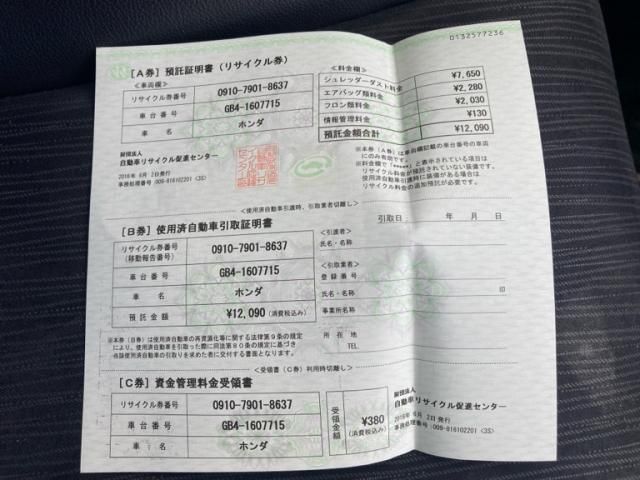 0132577236
［A券］預託証明書（リサイクル券）
＜車両欄＞
リサイクル券番号 0910-7901-8637
車台番号 GB4-1607715
車名 ホンダ
財団法人
自動車リサイクル促進センター
2016年 6月 2日発行
事務処理番号：009-816102201 <3S>
＜料金欄＞
シュレッダーダスト料金 ¥7,650
エアバッグ類料金 ¥2,280
フロン類料金 ¥2,030
情報管理料金 ¥130
預託金額合計 ¥12,090
※本券（A券）は車両欄記載の車台番号の車両
にのみ有効です。
※料金欄で「*****」と表示されている項目は
リサイクル料金が預託されていない装備です。
使用済自動車引渡時に装備がある場合は
リサイクル料金の追加預託が必要です。
＜使用済自動車引渡時、引取業者切離し＞
［B券］使用済自動車引取証明書
リサイクル券番号
（移動報告番号） 0910-7901-8637
車台番号 GB4-1607715
車名 ホンダ
預託金額 ¥12,090（消費税込み）
※本券（B券）は使用済自動車の再資源化等に関する法律第9条の規定
により、使用済自動車を引取った際に同法第80条の規定に基づき
当該使用済自動車の引取りを求めた者に交付する書面となります。
引取日 年 月 日
＜引渡者＞
氏名・名称
＜引取業者＞
登録番号
氏名・名称 印
事業所名称
所在地
TEL
＜受領書（C券）利用時切離し＞
［C券］資金管理料金受領書
リサイクル券番号 0910-7901-8637
車台番号 GB4-1607715
車名 ホンダ
受領金額 ¥380
（消費税込み）
財団法人
自動車リサイクル促進センター
2016年 6月 2日発行
事務処理番号：009-816102201 <3S>